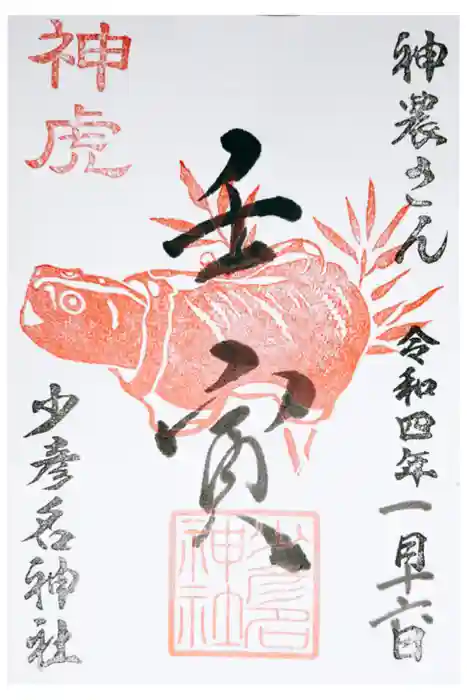 神農さん
令和四年一月十六日
壬寅
神虎
少彦名神社
少彦名
神社